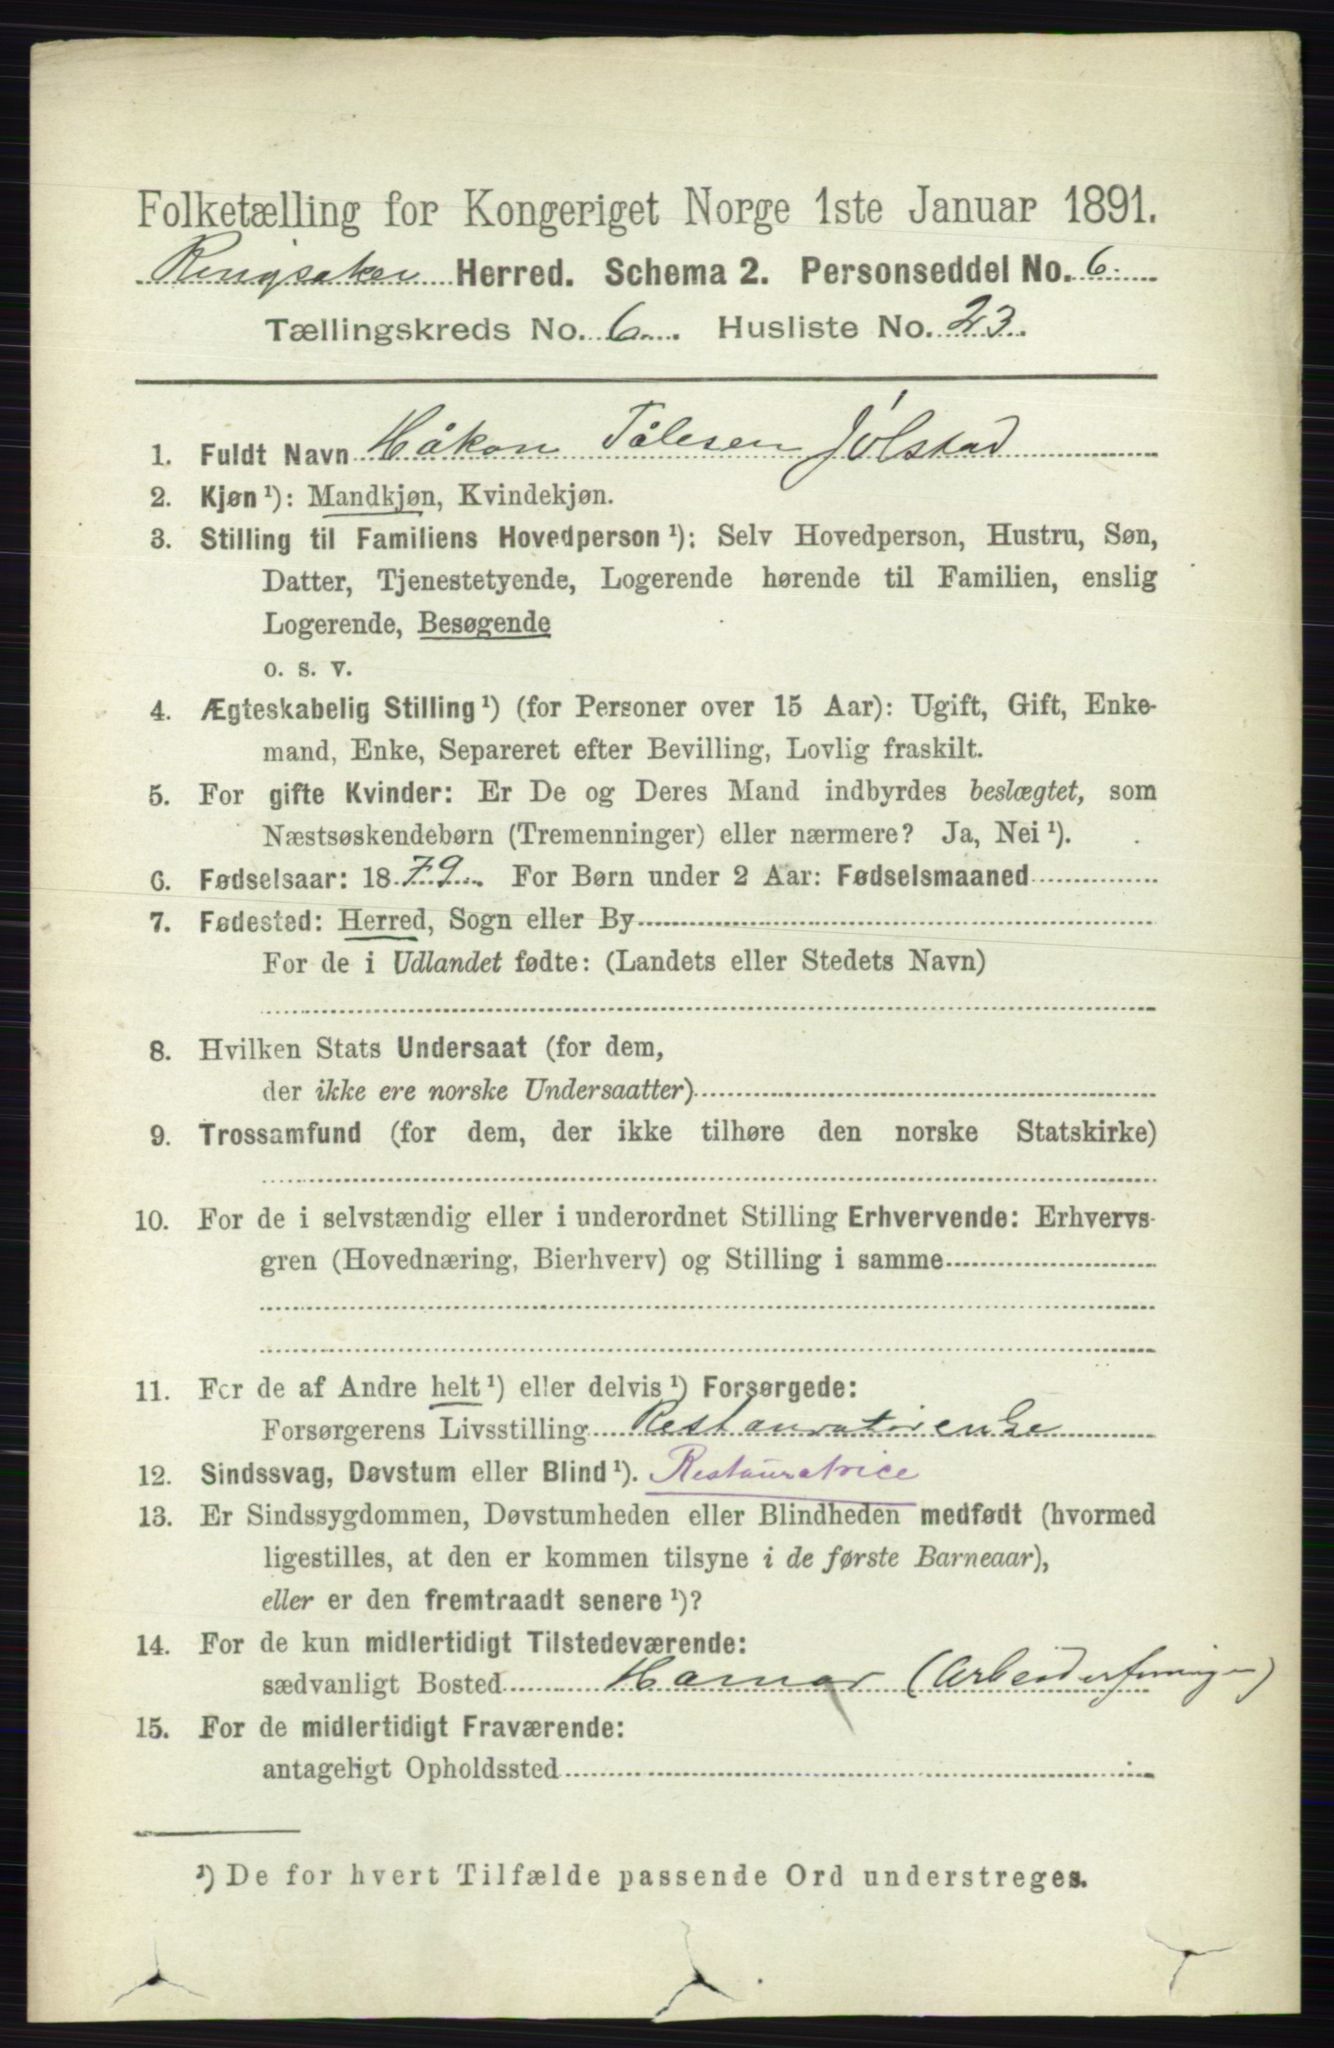 Folketælling for Kongeriget Norge 1ste Januar 1891.
Ringsaker Herred. Schema 2. Personseddel No. 6
Tællingskreds No. 6. Husliste No. 23.
1. Fuldt Navn Håkon Tålesen Jølstad
2. Kjøn ¹): Mandkjøn, Kvindekjøn.
3. Stilling til Familiens Hovedperson ¹): Selv Hovedperson, Hustru, Søn,
Datter, Tjenestetyende, Logerende hørende til Familien, enslig
Logerende, Besøgende
o. s. v.
4. Ægteskabelig Stilling ¹) (for Personer over 15 Aar): Ugift, Gift, Enke-
mand, Enke, Separeret efter Bevilling, Lovlig fraskilt.
5. For gifte Kvinder: Er De og Deres Mand indbyrdes beslægtet, som
Næstsøskendebørn (Tremenninger) eller nærmere? Ja, Nei ¹).
6. Fødselsaar: 1879. For Børn under 2 Aar: Fødselsmaaned
7. Fødested: Herred, Sogn eller By
For de i Udlandet fødte: (Landets eller Stedets Navn)
8. Hvilken Stats Undersaat (for dem,
der ikke ere norske Undersaatter)
9. Trossamfund (for dem, der ikke tilhøre den norske Statskirke)
10. For de i selvstændig eller i underordnet Stilling Erhvervende: Erhvervs-
gren (Hovednæring, Bierhverv) og Stilling i samme
11. For de af Andre helt ¹) eller delvis ¹) Forsørgede:
Forsørgerens Livsstilling Restauratørenke
12. Sindssvag, Døvstum eller Blind ¹). Restauratrice
13. Er Sindssygdommen, Døvstumheden eller Blindheden medfødt (hvormed
ligestilles, at den er kommen tilsyne i de første Barneaar),
eller er den fremtraadt senere ¹)?
14. For de kun midlertidigt Tilstedeværende:
sædvanligt Bosted Hamar
15. For de midlertidigt Fraværende:
antageligt Opholdssted
¹) De for hvert Tilfælde passende Ord understreges.